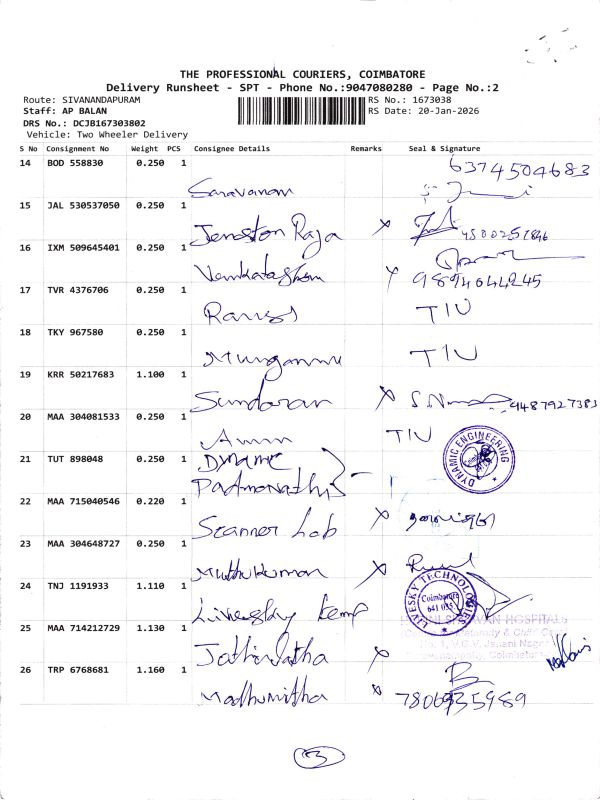 THE PROFESSIONAL COURIERS, COIMBATORE
Delivery Runsheet - SPT - Phone No.:9047080280 - Page No.:2
Route: SIVANANDAPURAM
RS No.: 1673038
Staff: AP BALAN
RS Date: 20-Jan-2026
DRS No.: DCJB167303802
Vehicle: Two Wheeler Delivery
S No Consignment No Weight PCS Consignee Details Remarks Seal & Signature
14 BOD 558830 0.250 1 6374504683
Saravanan
15 JAL 530537050 0.250 1
Jenston Raja
16 IXM 509645401 0.250 1
9894644245
17 TVR 4376706 0.250 1
TIU
18 TKY 967580 0.250 1
TIU
19 KRR 50217683 1.100 1
Sundaran 9487927383
20 MAA 304081533 0.250 1
TIU
21 TUT 898048 0.250 1 DYNAMIC ENGINEERING
22 MAA 715040546 0.220 1
Scanner Lab
23 MAA 304648727 0.250 1
Muthukumar
24 TNJ 1191933 1.110 1 LIVESKY TECHNOLOGIES
Coimbatore
641 035
25 MAA 714212729 1.130 1 HOSPITALS
26 TRP 6768681 1.160 1
Madhumitha 7806935989
3